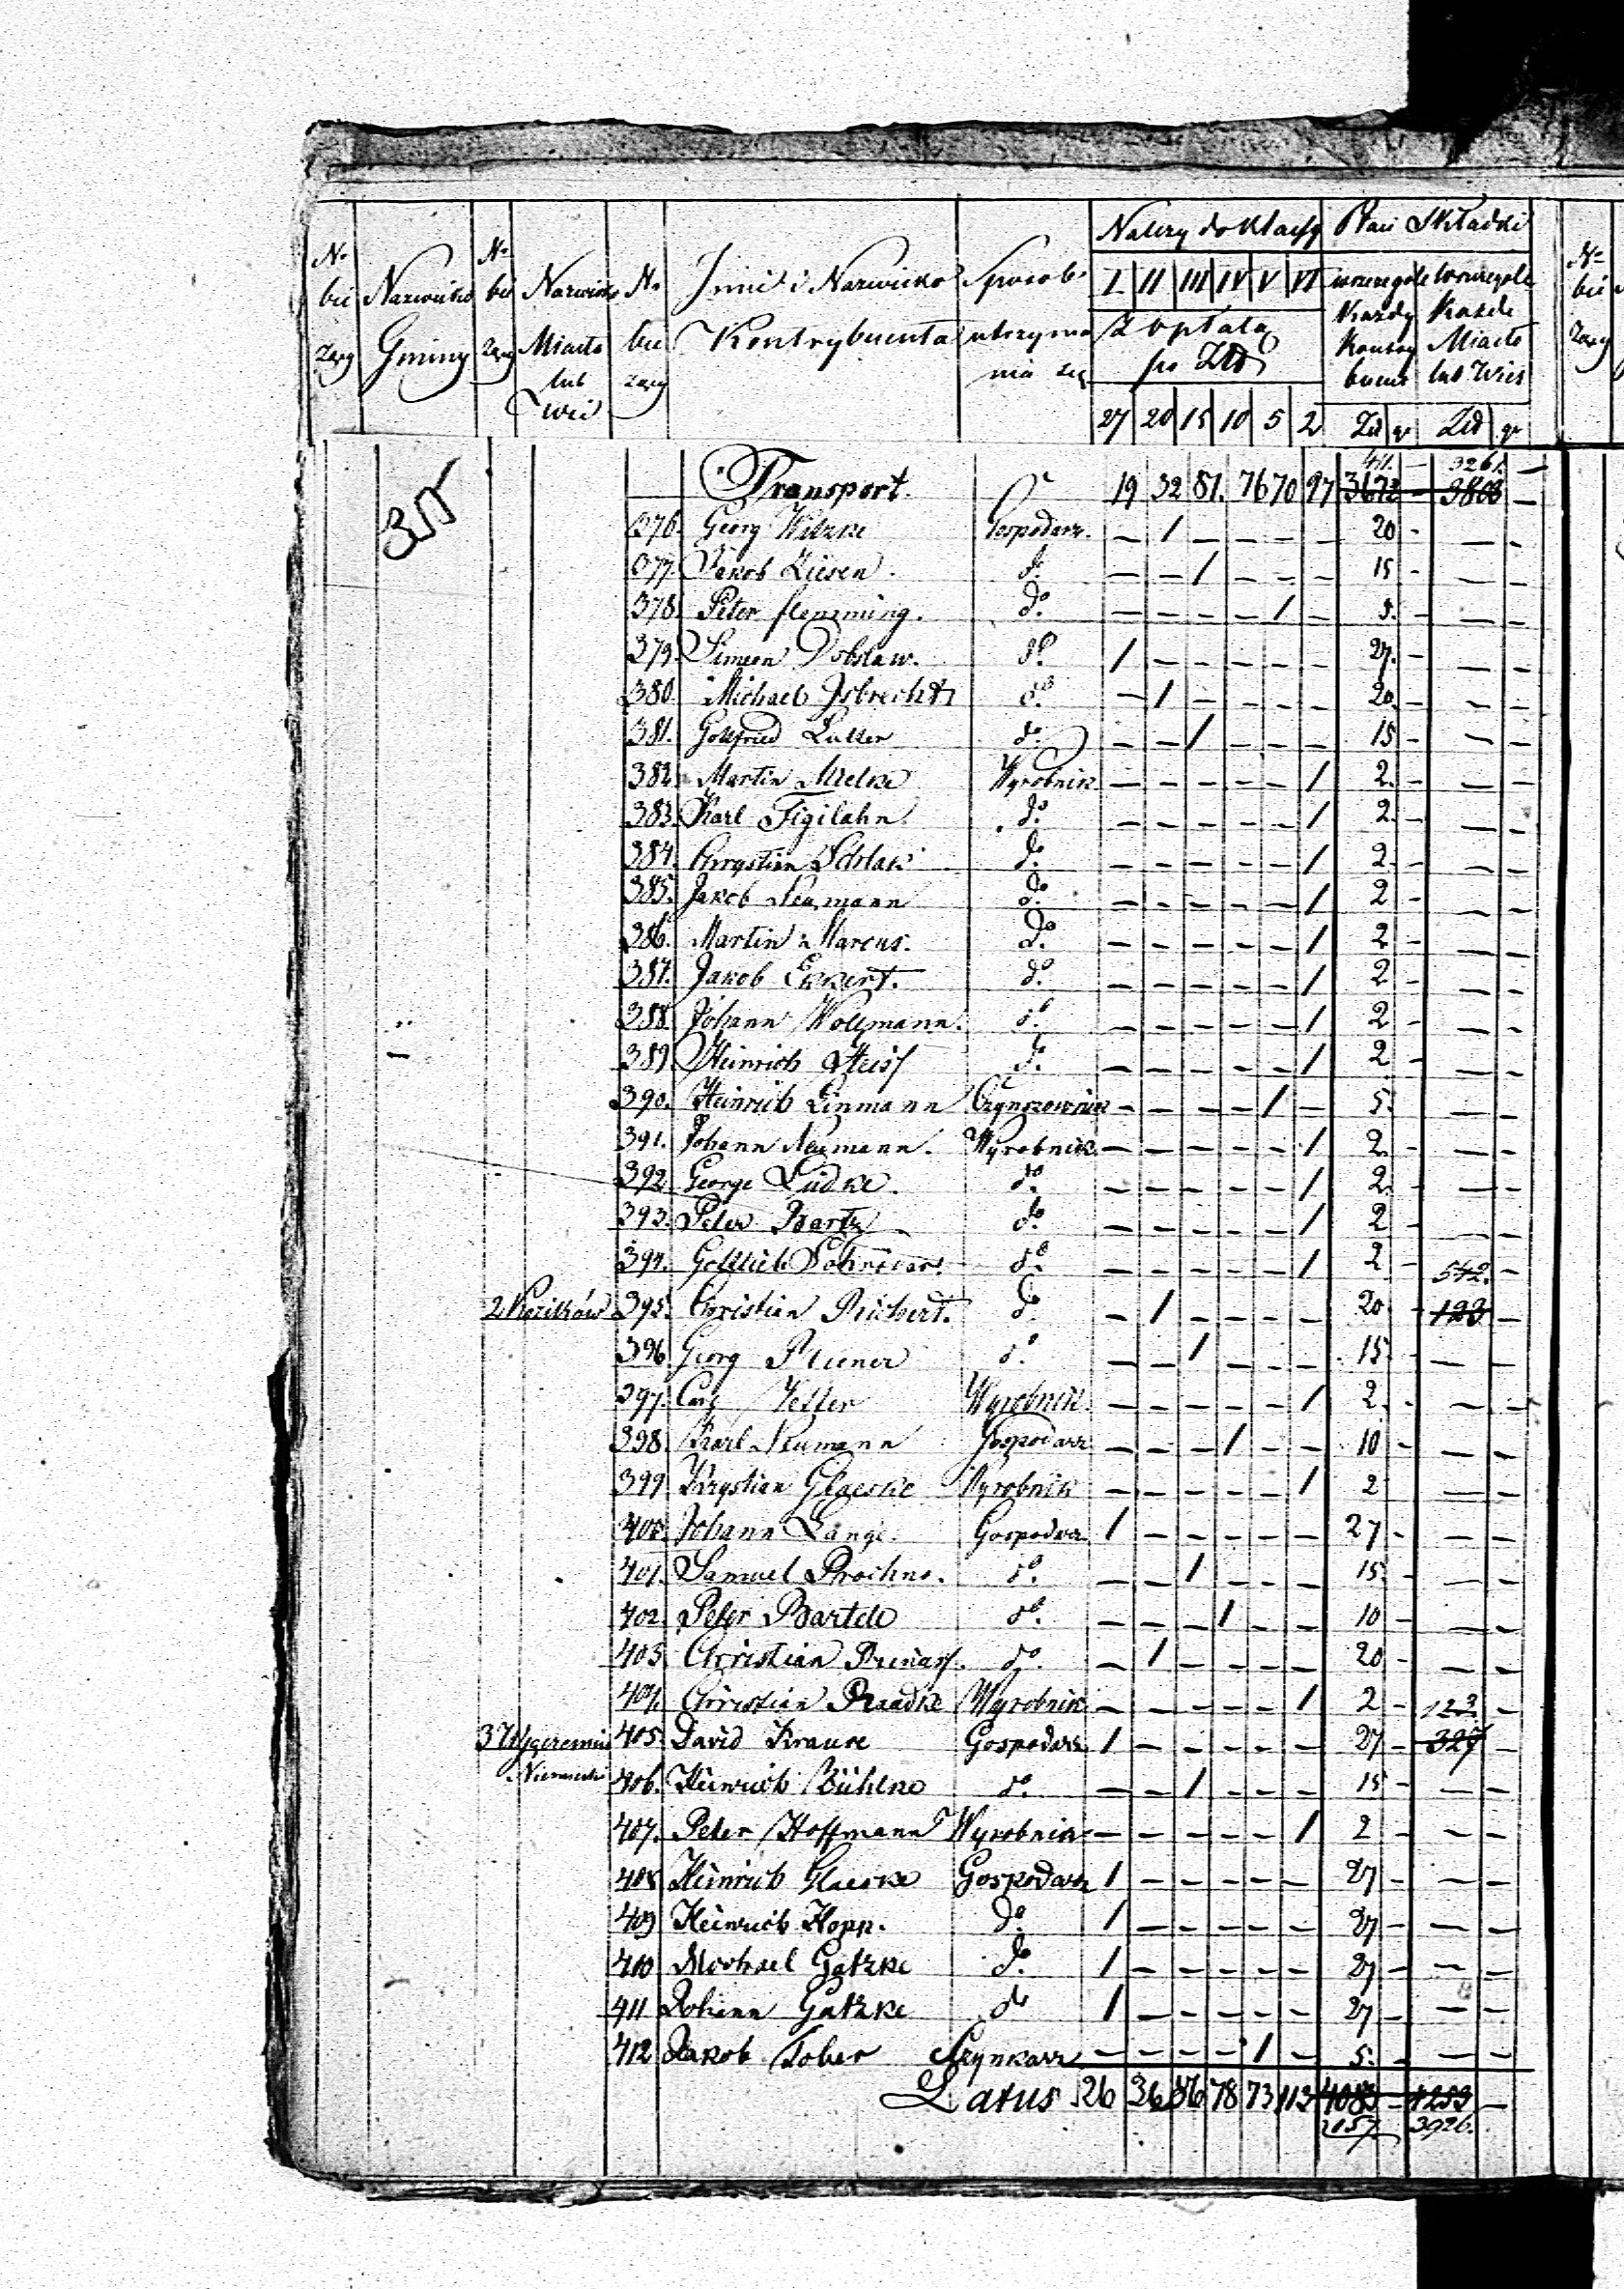 No bie żący
Nazwisko Gminy
No bie żący
Nazwisko Miasta lub Wsi
No bie żący
Imie i Nazwisko Kontrybuenta
Sposob utrzyma nia się
Należy do Klassy
I II III IV V VI
z opłatą po Złł
27 20 15 10 5 2
Płaci Składki
wszczegole Każdy Kontry buent
wszczegole Każde Miasto lub Wieś
Złł gr Złł gr
411. — 3261. —
Transport. 19 32 81. 76 70 97 3672 — 3803 —
376. Georg Witzke Gospodarz. — 1 — — — — 20 - — —
377. Jakob Ziesen. do — — 1 — — — 15 - — —
378. Peter flemming. do. — — — — 1 — 5. — —
379. Simeon Dobslaw. do. 1 — — — — — 27. — —
380. Michael Isbrecht do. — 1 — — — — 20. — —
381. Gottfried Lutter do. — — 1 — — — 15 - — —
382. Martin Mielke Wyrobnik — — — — — 1 2. - — —
383. Karl Figilahn do. — — — — — 1 2. - — —
384. Chrystian do. — — — — — 1 2. - — —
385. Jakob Neumann do. — — — — — 1 2 - — —
386. Martin Marcus. do. — — — — — 1 2 - — —
387. Jakob Ekkert. do. — — — — — 1 2 - — —
388. Johann Wollmann. do. — — — — — 1 2 - — —
389. Heinrich do. — — — — — 1 2 - — —
390. Heinrich Linmann Czynszownik — — — — 1 — 5. — —
391. Johann Neumann. Wyrobnik — — — — — 1 2. - — —
392 George Lüdke. do. — — — — — 1 2. — —
393. Peter Bartz do. — — — — — 1 2 - — —
394. Gottlieb do. — — — — — 1 2 - 542. —
2 395. Christian Reichert. do. — 1 — — — — 20 - 123 —
396 Georg do. — — 1 — — — 15. - — —
397. Wyrobnik. — — — — — 1 2. - — —
398. Karl Neumann Gospodarz — — — 1 — — 10 - — —
399 Krystian Glaeske Wyrobnik — — — — — 1 2 — —
400. Johann Lange. Gospodarz 1 — — — — — 27 - — —
401. Samuel Prochno. do. — — 1 — — — 15. - — —
402. Peter Bartele do. — — — 1 — — 10 - — —
403. Christian do. — 1 — — — — 20 - — —
404. Christian Raadke Wyrobnik — — — — — 1 2 - 123 —
3 405. David Krause Gospodarz 1 — — — — — 27 - 327 —
406. Heinrich Bühlke do. — — 1 — — — 15 - — —
407. Peter Hoffmann Wyrobnik — — — — — 1 2 - — —
408 Heinrich Glaeske Gospodarz 1 — — — — — 27 - — —
409 Heinrich Kopp. do. 1 — — — — — 27 - — —
410 Michael Gatzke do. 1 — — — — — 27 - — —
411 Johann Gatzke do 1 — — — — — 27 - — —
412 Jakob Tober Szynkarz — — — — 1 — 5. - — —
Latus 26 36 86 78 73 113 4083 — 4253 —
157 3926.